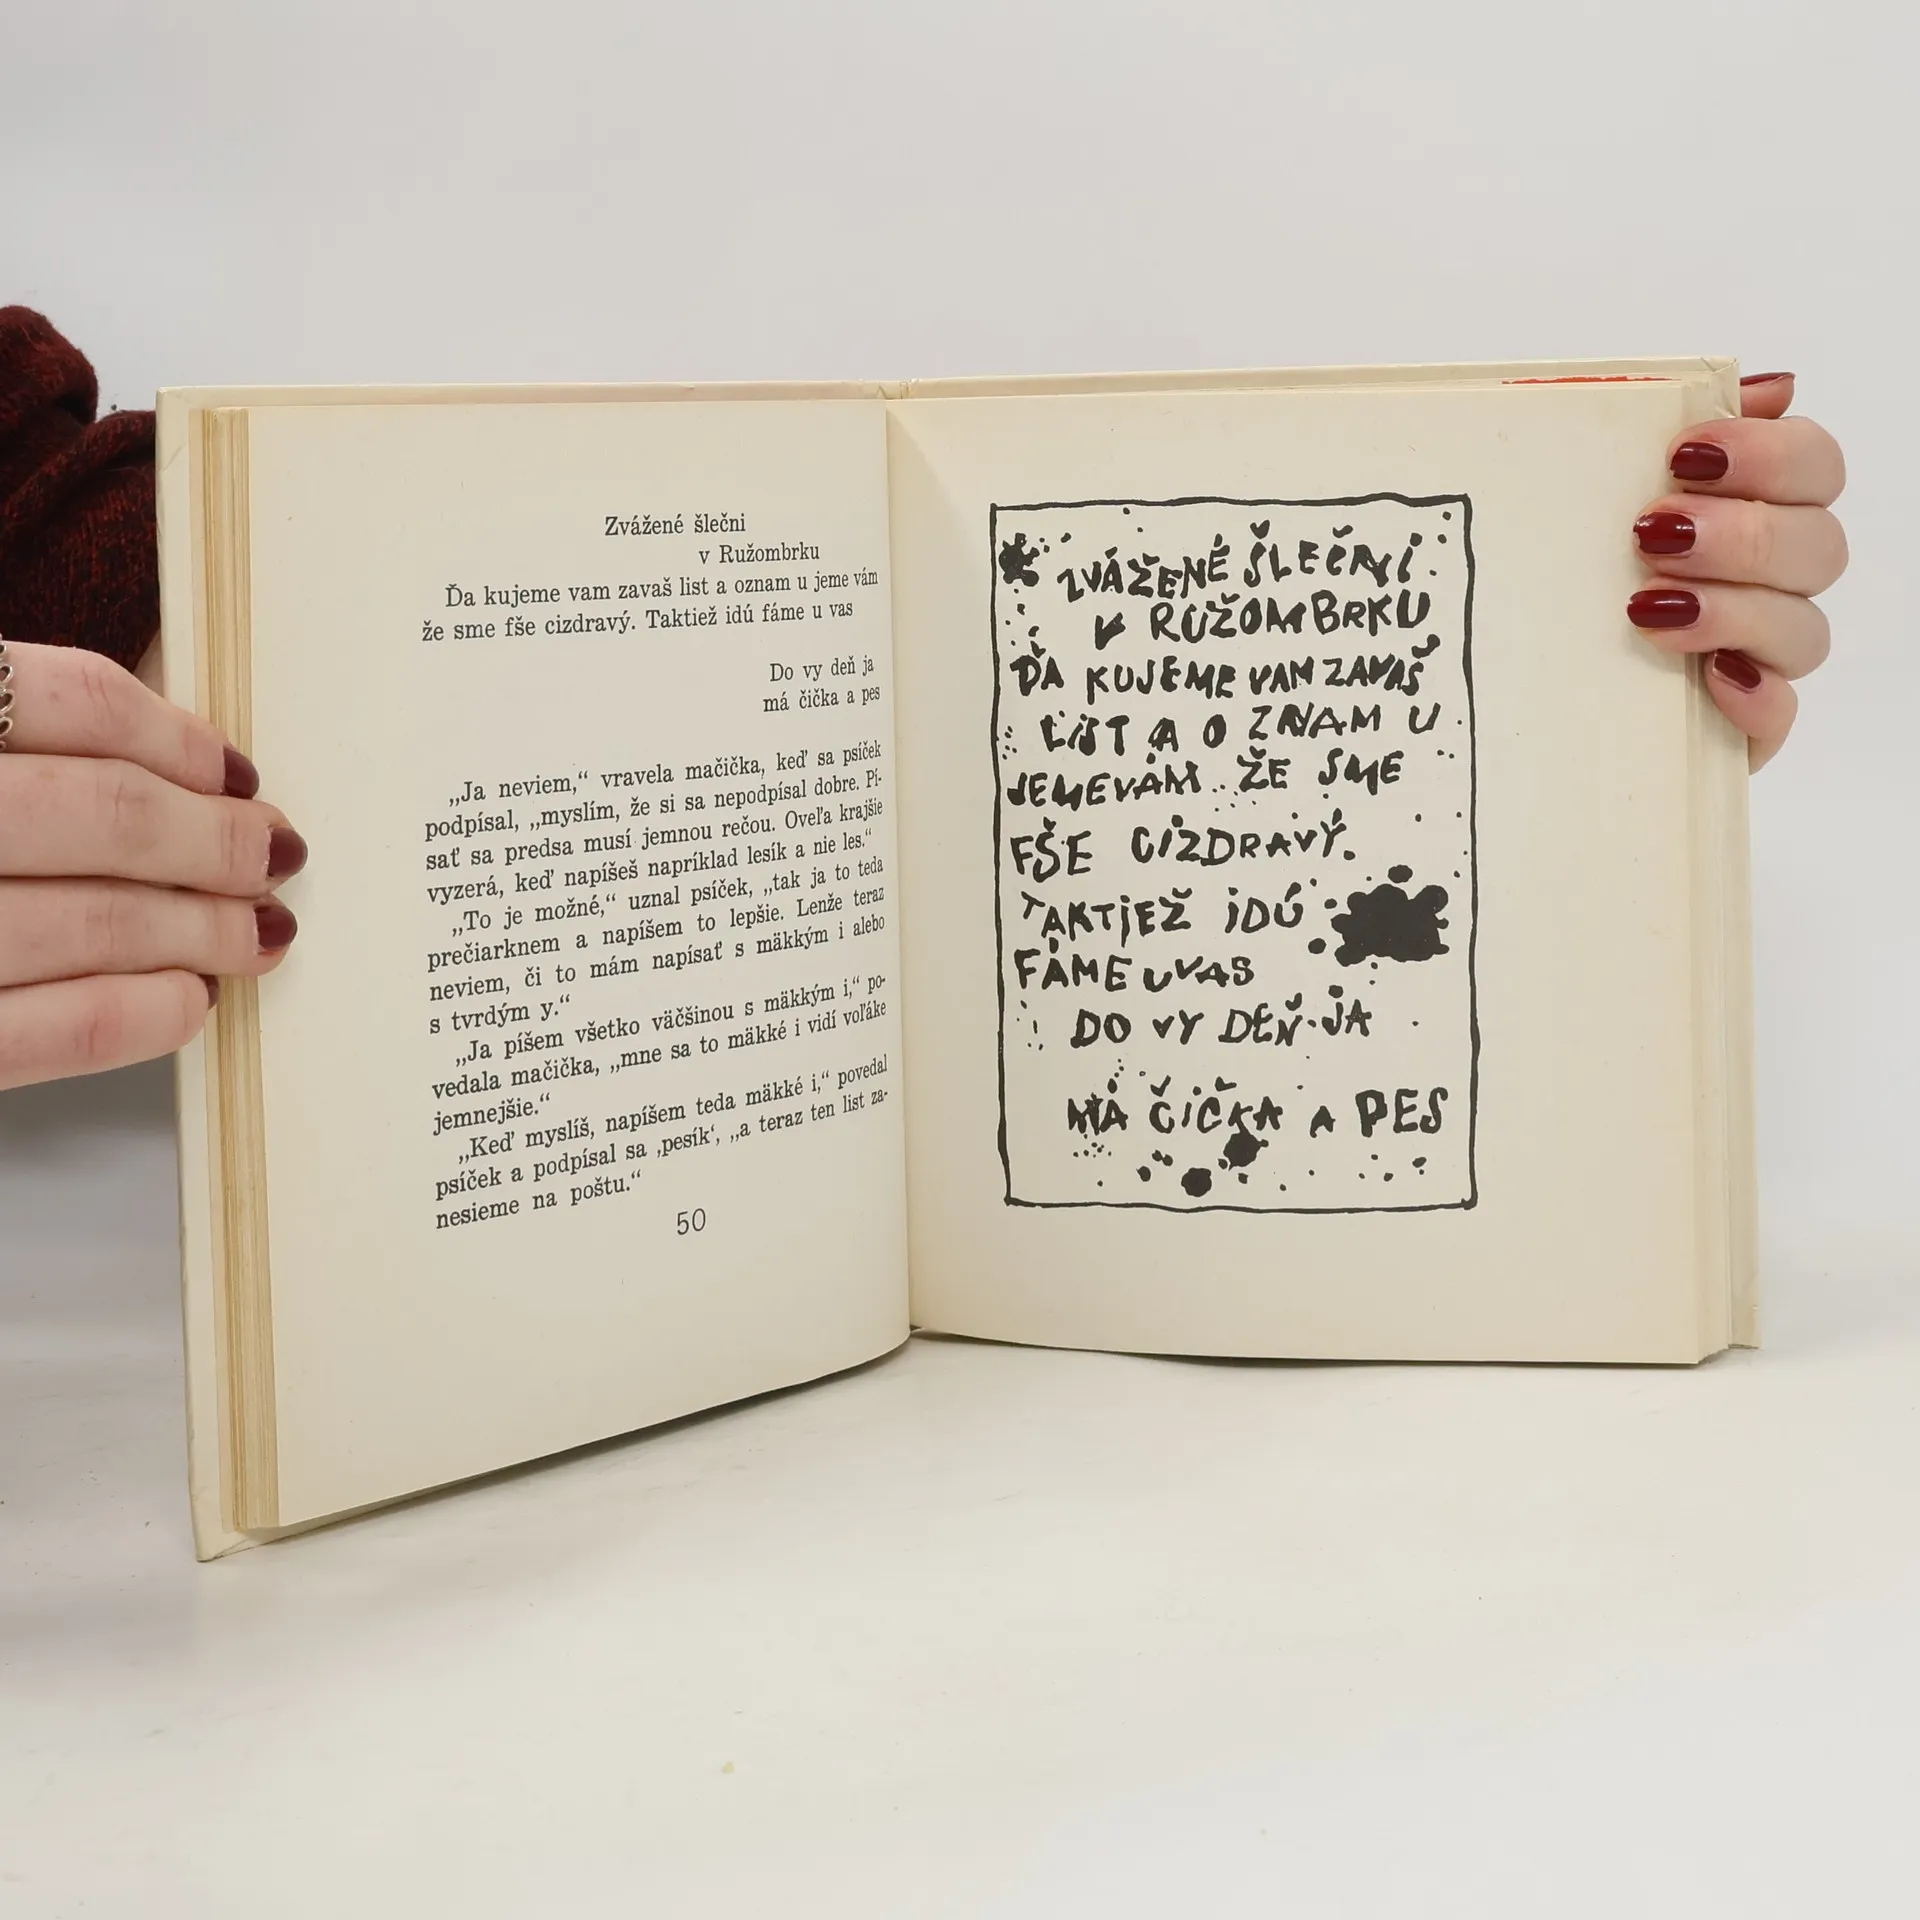 Zvážené šlečni
v Ružombrku
Ďa kujeme vam zavaš list a oznam u jeme vám
že sme fše cizdravý. Taktiež idú fáme u vas
Do vy deň ja
má čička a pes
„Ja neviem,“ vravela mačička, keď sa psíček
podpísal, „myslím, že si sa nepodpísal dobre. Pí-
sať sa predsa musí jemnou rečou. Oveľa krajšie
vyzerá, keď napíšeš napríklad lesík a nie les.“
„To je možné,“ uznal psíček, „tak ja to teda
prečiarknem a napíšem to lepšie. Lenže teraz
neviem, či to mám napísať s mäkkým i alebo
s tvrdým y.“
„Ja píšem všetko väčšinou s mäkkým i,“ po-
vedala mačička, „mne sa to mäkké i vidí voľáke
jemnejšie.“
„Keď myslíš, napíšem teda mäkké i,“ povedal
psíček a podpísal sa ‚pesík‘, „a teraz ten list za-
nesieme na poštu.“
50
ZVÁŽENÉ ŠLEČNI
V RUŽOMBRKU
ĎA KUJEME VAM ZAVAŠ
LIST A O ZNAM U
JEMEVÁM ŽE SME
FŠE CIZDRAVÝ.
TAKTIEŽ IDÚ
FÁME UVAS
DO VY DEŇ JA
MÁ ČIČKA A PES